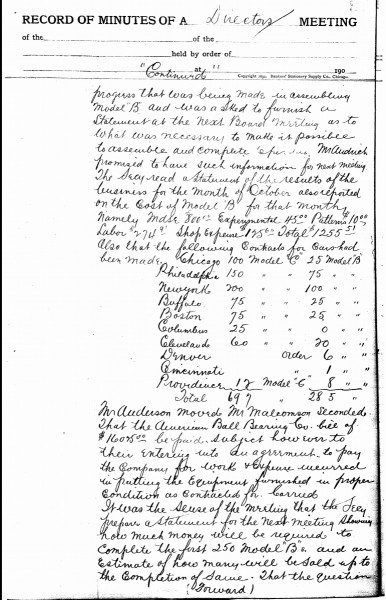 RECORD OF MINUTES OF A Directors MEETING
of the of the
held by order of
"Continued" at 190
Copyright 1891, Bankers' Stationery Supply Co., Chicago.
progress that was being made in assembling
Model "B" and was asked to furnish a
Statement at the Next Board Meeting as to
what was necessary to make it possible
to assemble and complete per day. Mr
promized to have such information for next meeting
The Secy read a statement of the results of the
business for the Month of October also reported
on the Cost of Model "B" for that month,
Namely Mdse Experimental 45.00 Patterns 10.00
Labor Shop Expense Total $1255.51
Also that the following Contracts for Cars had
been made. Chicago 100 Model "C" 25 Model "B"
Philadelphia 150 " 75 " "
Newyork 200 " " 100 " "
Buffalo 75 " " 25 " "
Boston 75 " " 25 " "
Columbus 25 " " 0 " "
Cleveland 60 " " 20 " "
Denver Order 6 " "
Cincinnati " 1 " "
Providence 12 Model "C" 8 " "
Total 697 285 "
Mr Anderson moved Mr Malcomson Seconded
That the American Ball Bearing Co. bill of
be paid. Subject however to
their Entering into an agreement to pay
the Company for work & Expense incurred
in putting the Equipment furnished in proper
Condition as Contracted for. Carried
It was the Sense of the Meeting that the Secy
prepare a Statement for the Next Meeting Showing
how much money will be required to
Complete the first 250 Model "B"s. and an
Estimate of how many will be Sold up to
the Completion of Same. That the question
(Forward)